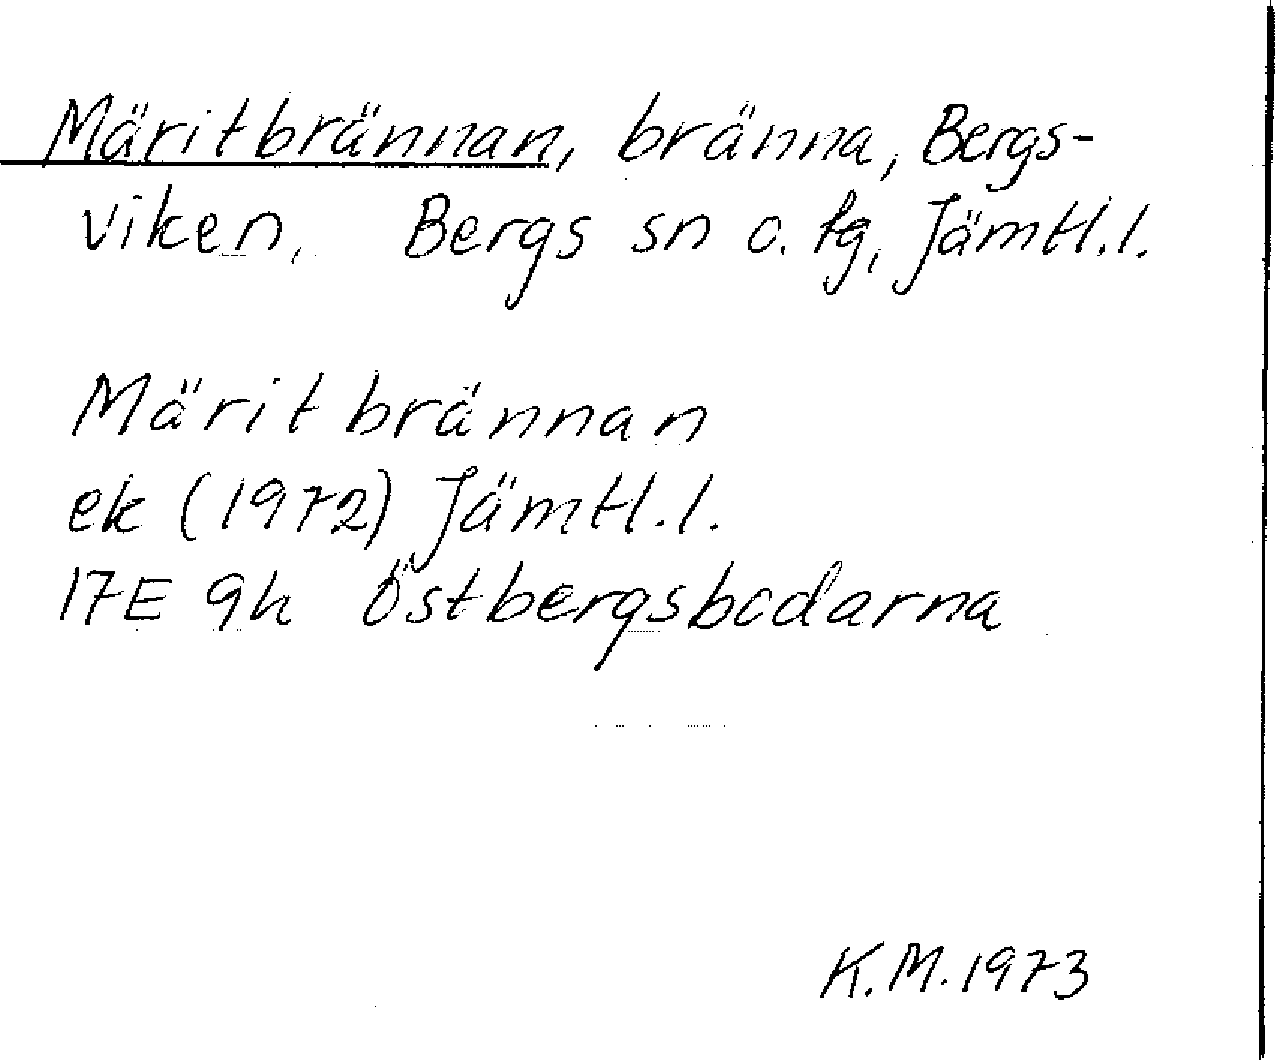 Märitbrännan, bränna, Bergs-
viken, Bergs sn o. tg, Jämtl. l.
Märitbrännan
ek (1972) Jämtl. l.
17E 9h Östbergsbodarna
K.M. 1973